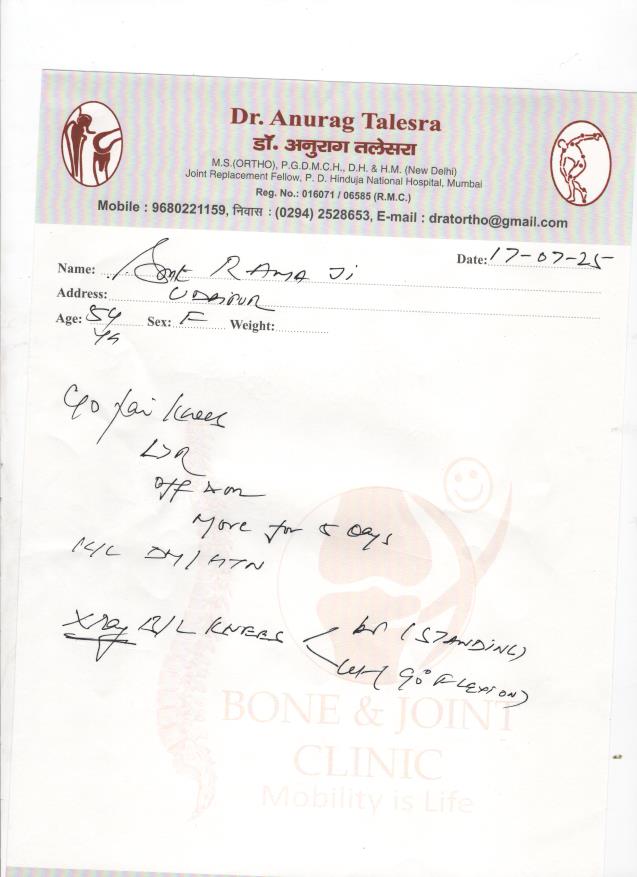 Dr. Anurag Talesra
डॉ. अनुराग तलेसरा
M.S.(ORTHO), P.G.D.M.C.H., D.H. & H.M. (New Delhi)
Joint Replacement Fellow, P. D. Hinduja National Hospital, Mumbai
Reg. No.: 016071 / 06585 (R.M.C.)
Mobile : 9680221159, निवास : (0294) 2528653, E-mail : dratortho@gmail.com
Date: 17-07-25
Name: Smt RAMA Ji
Address: UDAIPUR
Age: 54 Sex: F Weight:
Yrs
C/o Pain Knees
L>R
Off & on
More for 5 Days
K/C DM/HTN
Xray B/L KNEES AP (STANDING)
LAT (90° FLEXION)
BONE & JOINT
CLINIC
Mobility is Life